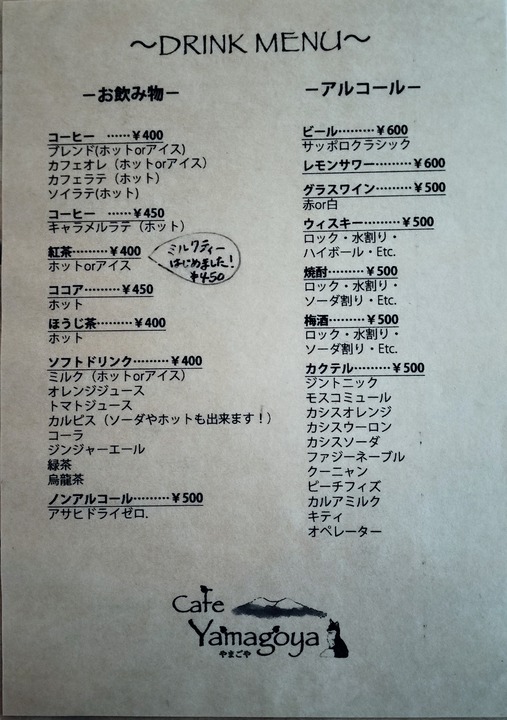 ～DRINK MENU～
－お飲み物－
コーヒー ……￥400
ブレンド(ホットorアイス)
カフェオレ（ホットorアイス）
カフェラテ（ホット）
ソイラテ(ホット)
コーヒー ……￥450
キャラメルラテ（ホット）
紅茶………￥400
ホットorアイス
ミルクティー
はじめました！
￥450
ココア………￥450
ホット
ほうじ茶………￥400
ホット
ソフトドリンク………￥400
ミルク（ホットorアイス）
オレンジジュース
トマトジュース
カルピス（ソーダやホットも出来ます！）
コーラ
ジンジャーエール
緑茶
烏龍茶
ノンアルコール………￥500
アサヒドライゼロ.
－アルコール－
ビール………￥600
サッポロクラシック
レモンサワー………￥600
グラスワイン………￥500
赤or白
ウィスキー………￥500
ロック・水割り・
ハイボール・Etc.
焼酎………￥500
ロック・水割り・
ソーダ割り・Etc.
梅酒………￥500
ロック・水割り・
ソーダ割り・Etc.
カクテル………￥500
ジントニック
モスコミュール
カシスオレンジ
カシスウーロン
カシスソーダ
ファジーネーブル
クーニャン
ピーチフィズ
カルアミルク
キティ
オペレーター
Cafe
Yamagoya
やまごや